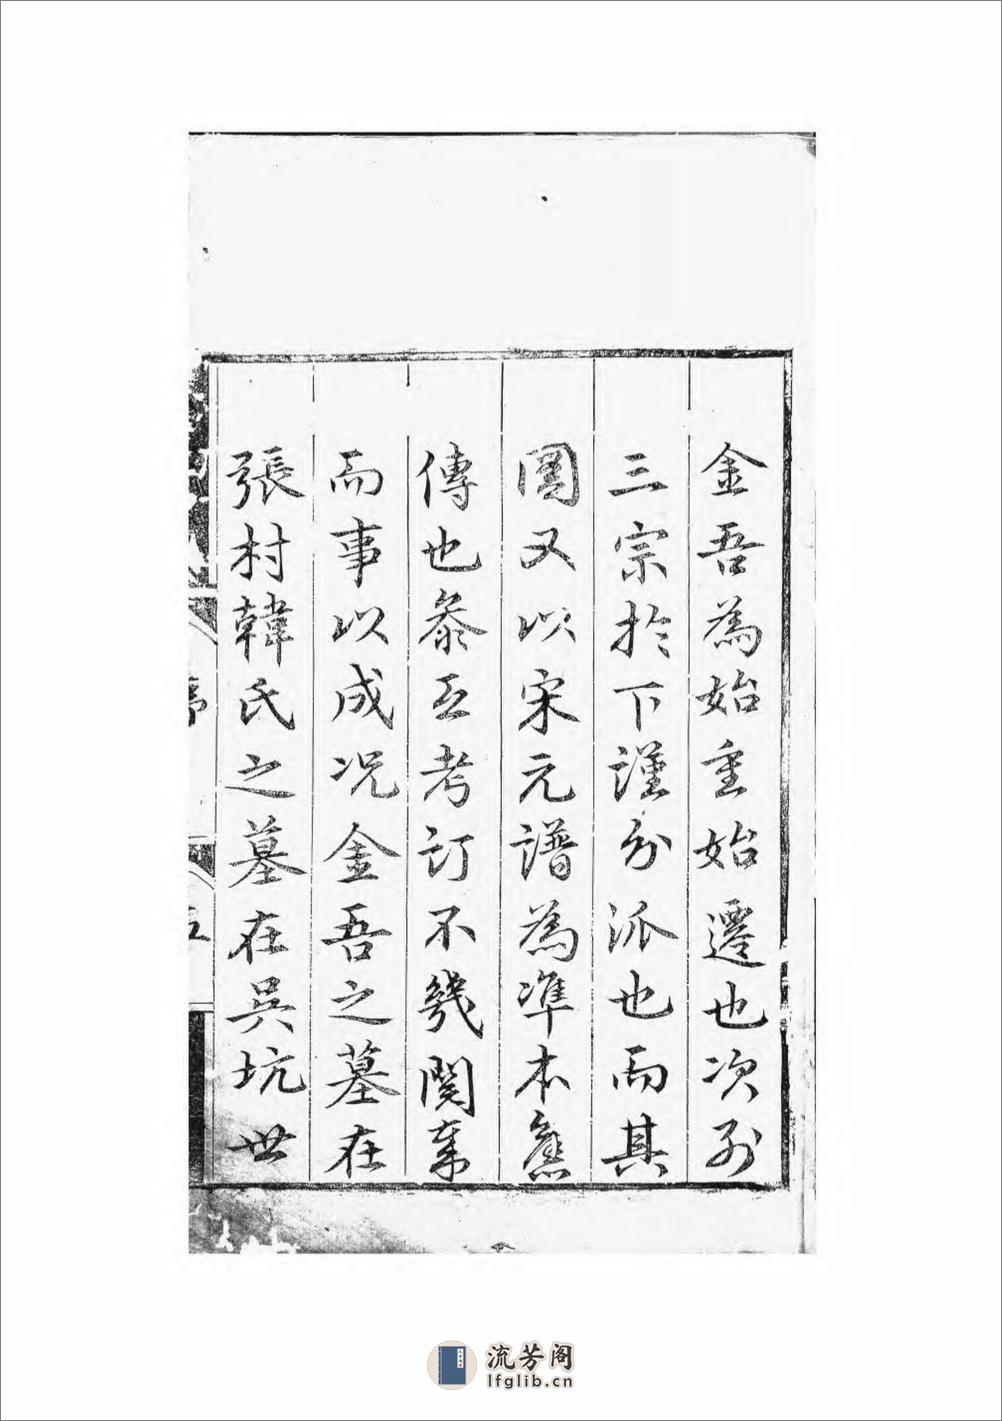 金吾為始重始遷也次列
三宗於下謹分派也而其
圖又以宋元譜為準本舊
傳也叅互考訂不幾闕事
而事以成况金吾之墓在
張村韓氏之墓在吳坑世
序
五
流芳阁
lfglib.cn